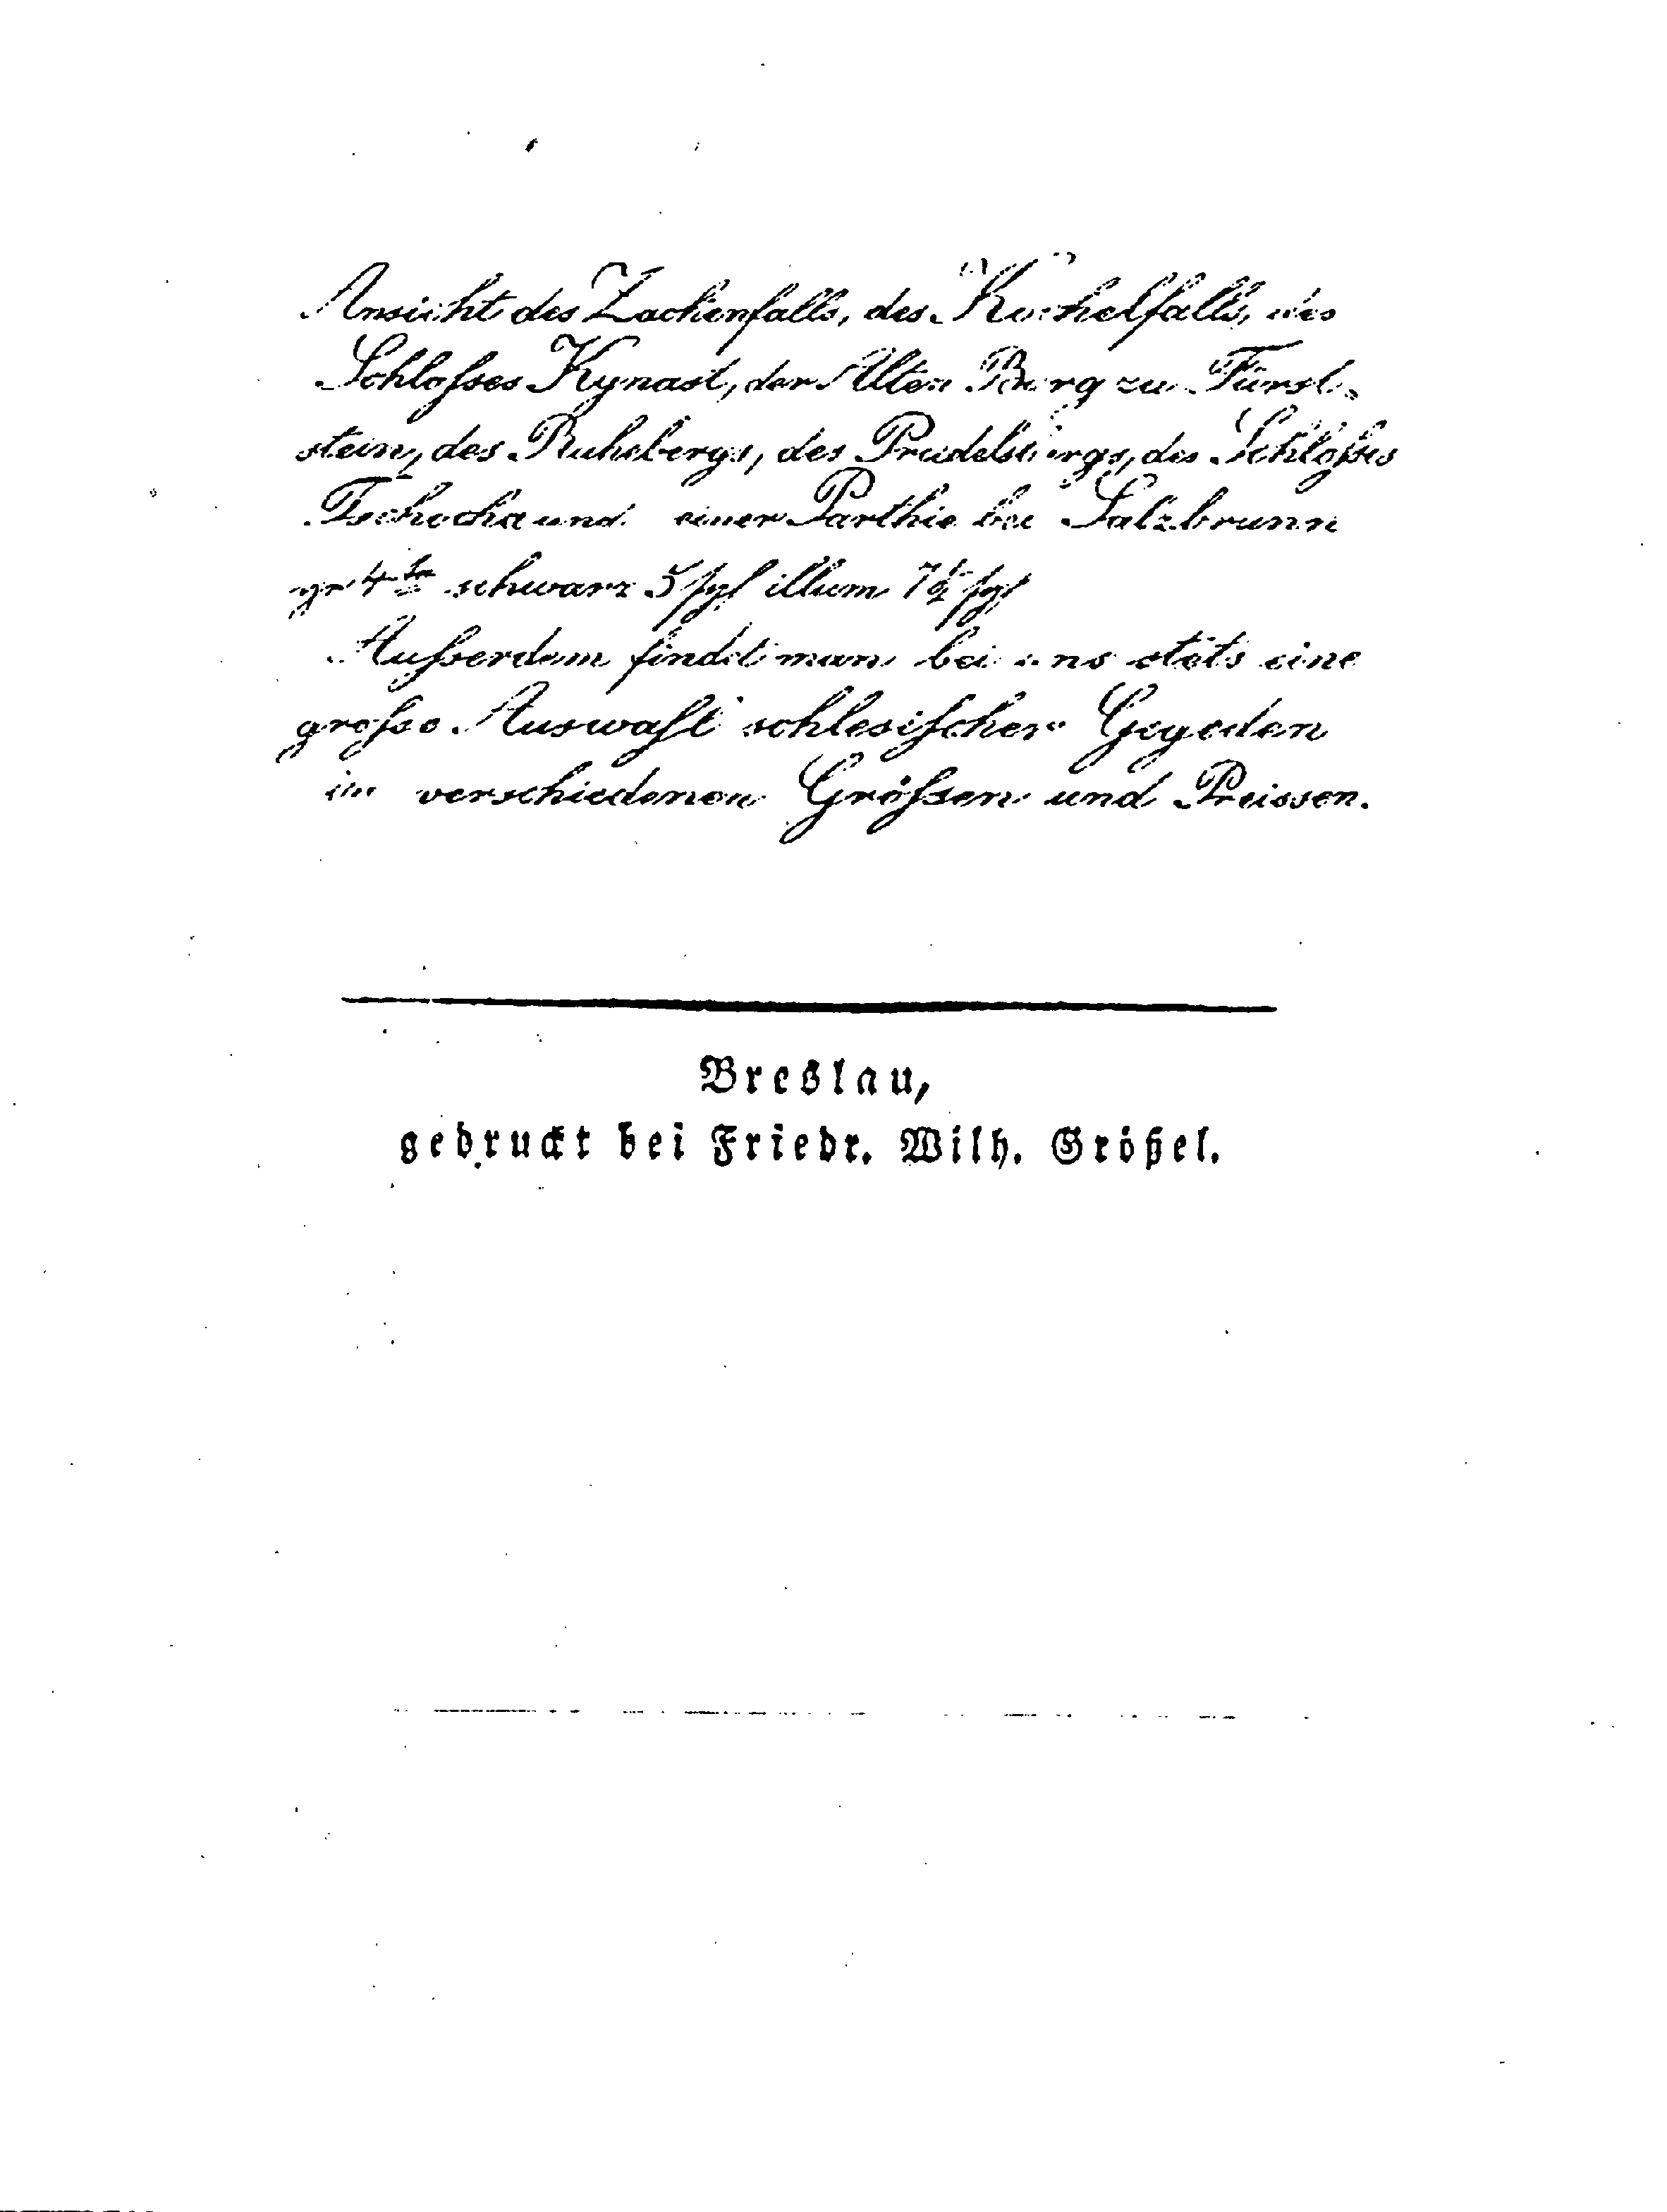 Ansicht des Zackenfalls, des Kochelfalls, des
Schloſses Kynast, der Alten Burg zu Fürst-
stein, des Ruhebergs, des Prudelbergs, des Schloſses
Tschocha und einer Parthie bei Salzbrunn
gr 4to schwarz 5 ſgl illum 7½ ſgl
Auſserdem findet man bei uns stets eine
groſse Auswahl schlesiſcher Gegeden
in verschiedenen Gröſsen und Preissen.
Breslau,
gedruckt bei Friedr. Wilh. Größel.